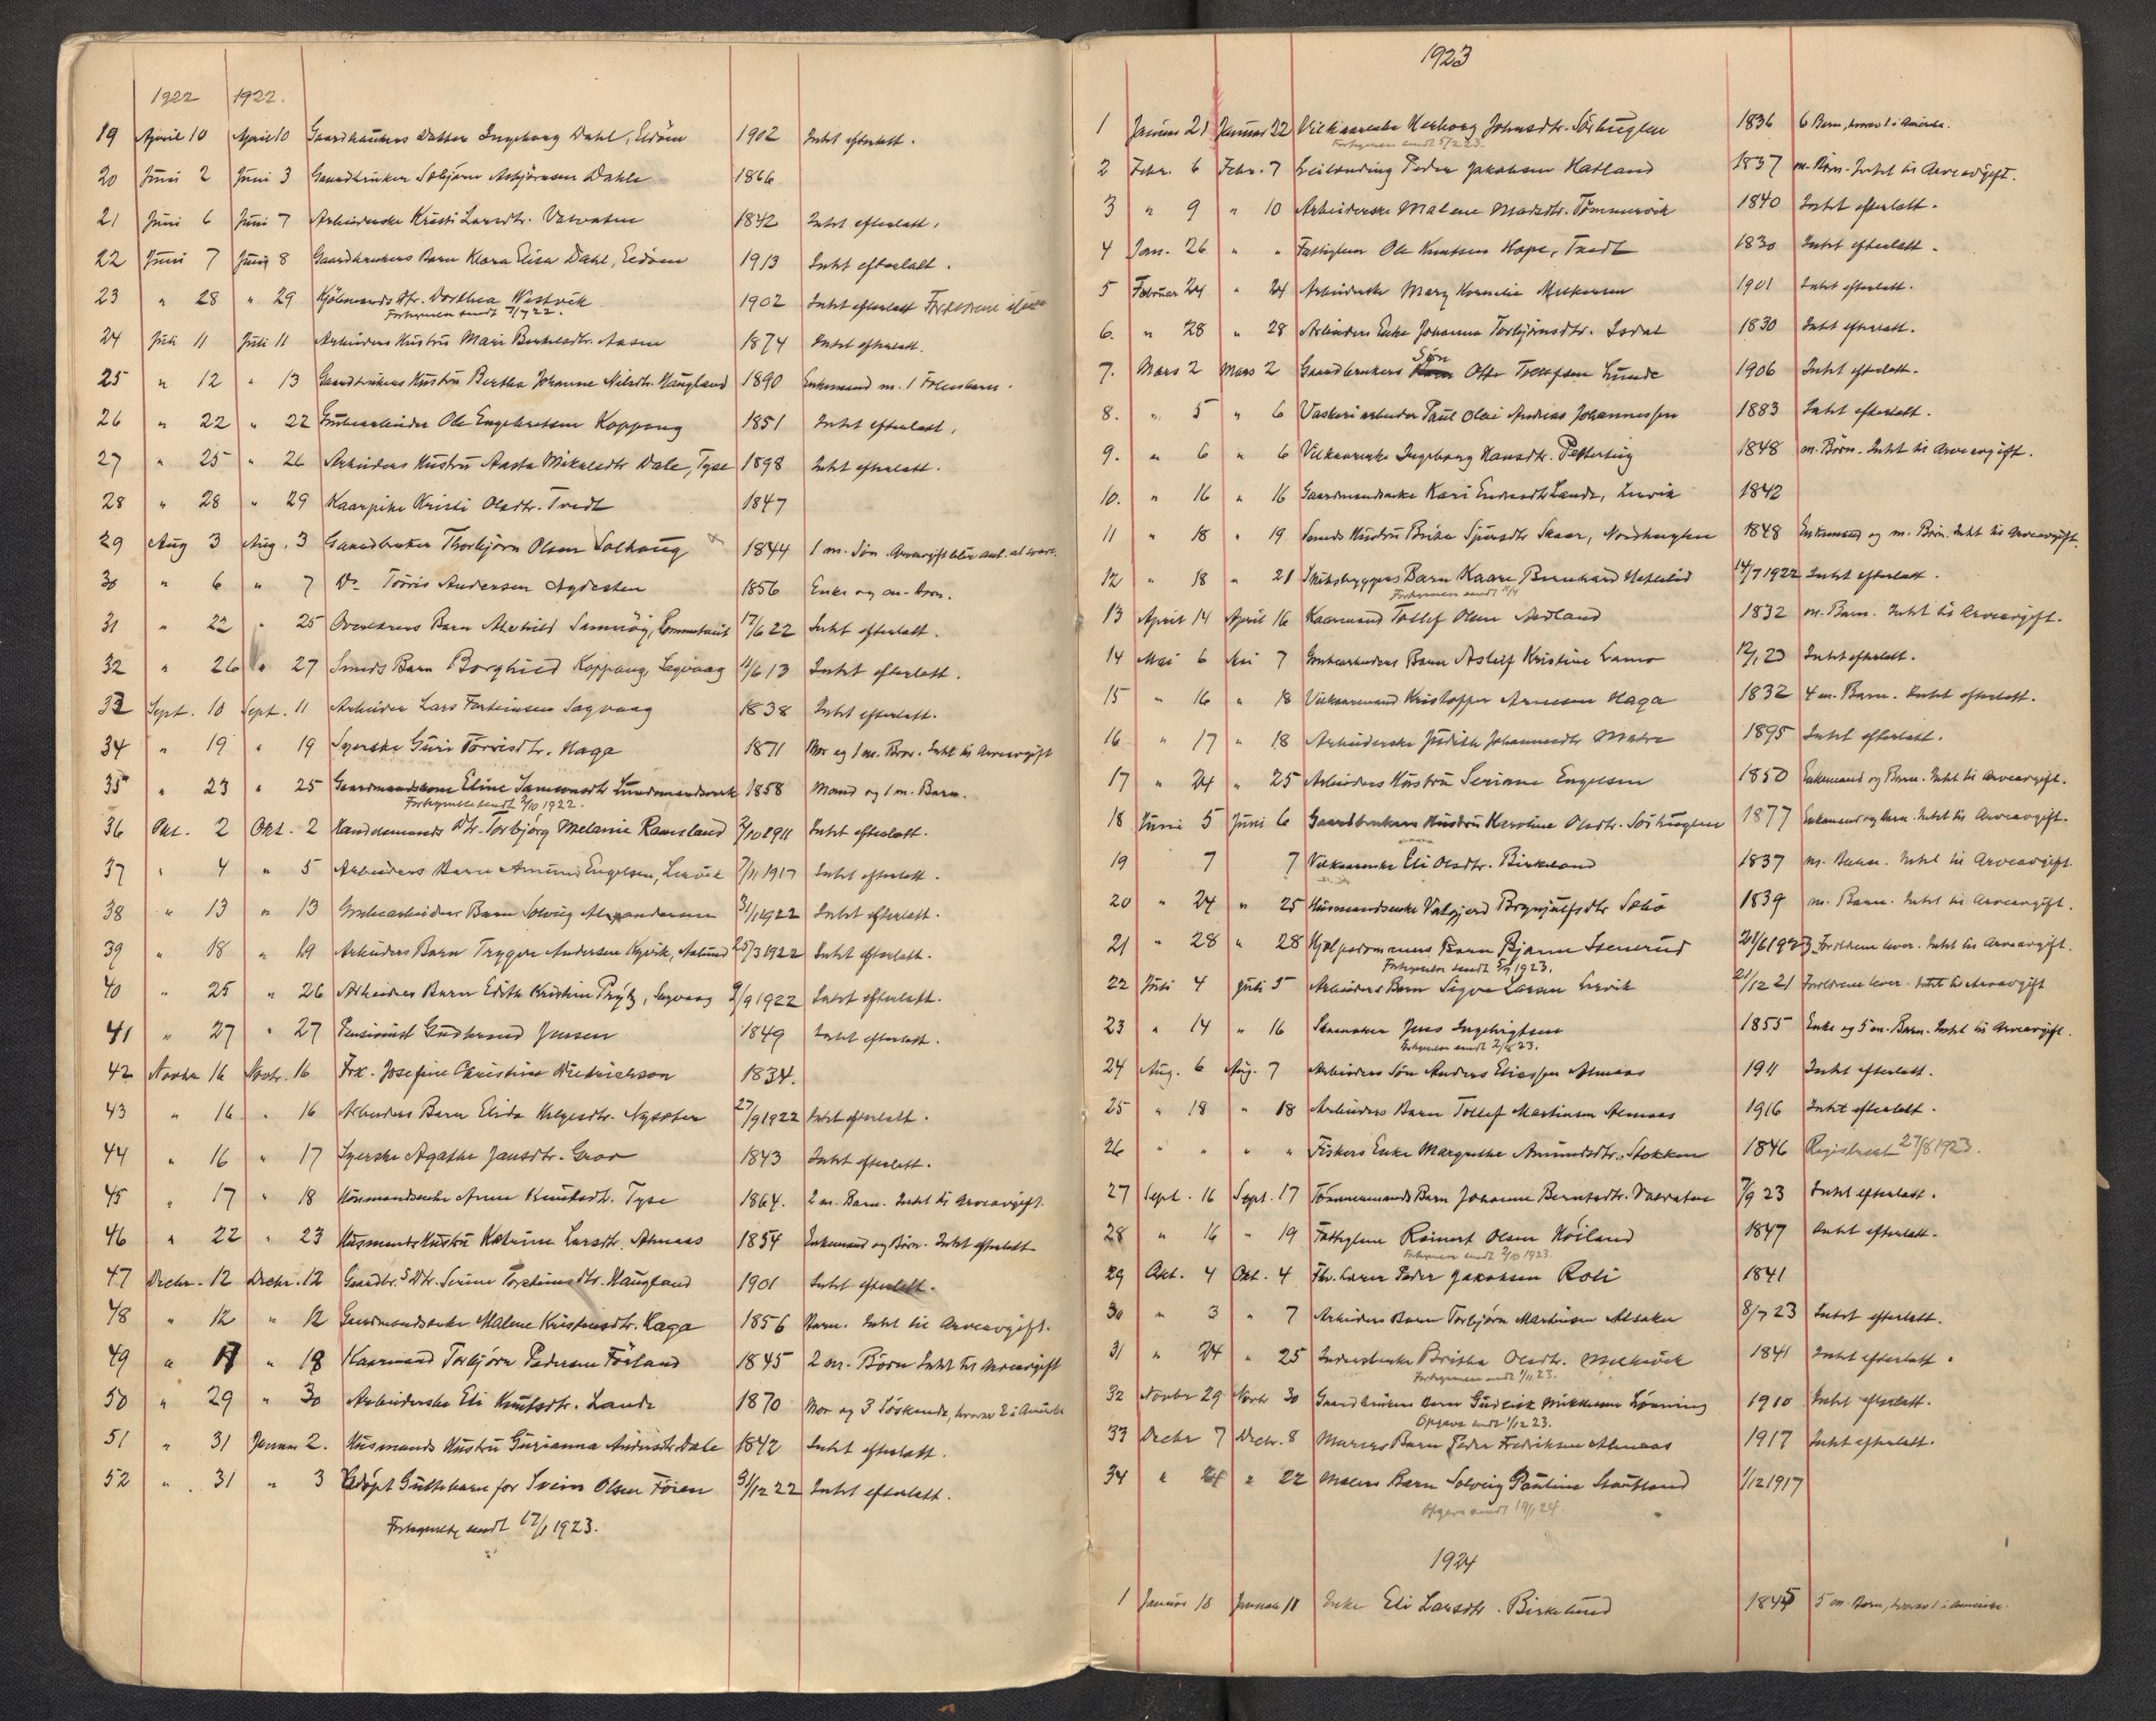 1922 1922.
19 April 10 April 10 Gaardbrukers Datter Ingeborg Dahl, Eidöen 1902 Intet efterlatt.
20 Juni 2 Juni 3 Gaardbruker Asbjörnsen Dahle 1866
21 Juni 6 Juni 7 Arbeiderske Kristi Larsdtr. Vatvatne 1842 Intet efterlatt.
22 Juni 7 Juni 8 Gaardbrukers Barn Klara Elisa Dahl, Eidöen 1913 Intet efterlatt.
23 " 28 " 29 Kjöbmands Dtr. Dorthea Westvik 1902 Intet efterlatt Forældrene
Fortegnelse sendt 22.
24 Juli 11 Juli 11 Arbeiders Hustru Mari Aasen 1874 Intet efterlatt.
25 " 12 " 13 Gaardbrukers Hustru Bertha Johanne Nilsdtr. Haugland 1890 Enkemand m. 1
26 " 22 " 22 Grubearbeider Ole Engebretsen Koppang 1851 Intet efterlatt.
27 " 25 " 26 Arbeiders Hustru Aasta Mikalsdtr Dale, Tyse 1898 Intet efterlatt.
28 " 28 " 29 Kaarpike Kristi Olsdtr. Tvedt 1847
29 Aug 3 Aug. 3 Gaardbruker Thorbjörn Olsen Solhaug 1844 1 m. Sön.
30 " 6 " 7 Do Torris Andersen Agdesten 1856 Enke og m. Barn.
31 " 22 " 25 Barn Alvhild Samnöy, 17/6 22 Intet efterlatt.
32 " 26 " 27 Smeds Barn Borghild Koppang, Sagvaag 11/6 13 Intet efterlatt.
33 Sept. 10 Sept. 11 Arbeider Lars Torkinsen Sagvaag 1838 Intet efterlatt.
34 " 19 " 19 Syerske Guri Torrisdtr. Haga 1871 Mor og 1 m. Bror. Intet til Arveavgift
35 " 23 " 25 Gaardmandskone Eline Samsonsdtr 1858 Mand og 1 m. Barn.
Fortegnelse sendt 2/10 1922.
36 Okt. 2 Okt. 2 Handelsmands Dtr. Torbjörg Melanie Ravnsland 2/10 1911 Intet efterlatt.
37 " 4 " 5 Arbeiders Barn Amund Engelsen, Lervik 7/11 1917 Intet efterlatt.
38 " 13 " 13 Grubearbeiders Barn Solveig Alexandersen 31/1 1922 Intet efterlatt.
39 " 18 " 19 Arbeiders Barn Trygve Andersen 25/3 1922 Intet efterlatt.
40 " 25 " 26 Arbeiders Barn Edith Kristine Prytz, Sagvaag 9/9 1922 Intet efterlatt.
41 " 27 " 27 Pensionist Gudbrand Jensen 1849 Intet efterlatt.
42 Novbr 16 Novbr. 16 Frk. Josefine Christine 1834.
43 " 16 " 16 Arbeiders Barn Elida Helgesdtr. Nysæter 27/9 1922 Intet efterlatt.
44 " 16 " 17 Syerske Agathe Jansdtr. Grov 1843 Intet efterlatt.
45 " 17 " 18 Husmandsenke Anna Knutsdtr. Tyse 1864. 2 m. Barn. Intet til Arveavgift.
46 " 22 " 23 Husmands Hustru Katrine Larsdtr. Almaas 1854 Enkemand og Börn. Intet efterlatt
47 Decbr. 12 Decbr. 12 Gaardbr.s Dtr. Serine Dtr. Haugland 1901 Intet efterlatt.
48 " 12 " 12 Gaardmandsenke Malene Kristensdtr. Haga 1856 Barn. Intet til Arveavgift.
49 " 17 " 18 Kaarmand Torbjörn Pedersen Förland 1845 2 m. Börn Intet til Arveavgift
50 " 29 " 30 Arbeiderske Eli Knutsdtr. Lande 1870 Mor og 3 Söskende, hvorav 2 i Amerika
51 " 31 Januar 2. Husmands Hustru Gurianna Dale 1842 Intet efterlatt.
52 " 31 " 3 Guttebarn for Svein Olsen Föien 31/12 22 Intet efterlatt.
Fortegnelse sendt 12/1 1923.
1923
1 Januar 21 Januar 22 Vilkaarenke Herborg Johnsdtr. Sörhuglen 1836 6 Barn, hvorav 1 i Amerika.
Fortegnelse sendt 5/2 23.
2 Febr. 6 Febr. 7 Leilending Peder Jakobsen Hatland 1837 m. Börn. Intet til Arveavgift.
3 " 9 " 10 Arbeiderske Malene Madsdtr. Tömmervik 1840 Intet efterlatt.
4 Jan. 26 " " Fattiglem Ole Knutsen Hope, Tvedt 1830 Intet efterlatt.
5 Februar 24 " 24 Arbeiderske Mary Kornelie 1901 Intet efterlatt.
6. " 28 " 28 Arbeiders Enke Johanna Torbjörnsdtr. Isdal 1830 Intet efterlatt.
7. Mars 2 Mars 2 Gaardbrukers Sön Otto Lunde 1906 Intet efterlatt.
8. " 5 " 6 Vaskeriarbeider Paul Olai Andreas Johannessen 1883 Intet efterlatt.
9. " 6 " 6 Vilkaarenke Ingeborg Hansdtr. Petterteig 1848 m. Börn. Intet til Arveavgift.
10. " 16 " 16 Gaardmandsenke Kari Lande, Lervik 1842
11 " 18 " 19 Smeds Hustru Brita Sjursdtr Skaar, Nordhuglen 1848 Enkemand og m. Börn. Intet til Arveavgift.
12 " 18 " 21 Skibsbyggers Barn Kaare Bernhard 14/7 1922 Intet efterlatt.
Fortegnelse sendt
13 April 14 April 16 Kaarmand Tollef Olsen Aadland 1832 m. Barn. Intet til Arveavgift.
14 Mai 6 Mai 7 Grubearbeiders Barn Asleif Kristine Lamo 12/1 23 Intet efterlatt.
15 " 16 " 18 Vilkaarmand Kristoffer Arnesen Haga 1832 4 m. Barn. Intet efterlatt.
16 " 17 " 18 Arbeiderske Judith Johannesdtr Matre 1895 Intet efterlatt.
17 " 24 " 25 Arbeiders Hustru Seriane Engelsen 1850 Enkemand og Barn. Intet til Arveavgift.
18 Juni 5 Juni 6 Gaardbrukers Hustru Karoline Olsdtr. Sörhuglen 1877 Enkemand og barn. Intet til Arveavgift.
19 7 7 Vilkaarenke Eli Olsdtr. Birkeland 1837 m. Barn. Intet til Arveavgift.
20 " 24 " 25 Husmandsenke Valgjerd Brynjulfsdtr Sæbö 1839 m. Barn. Intet til Arveavgift.
21 " 28 " 28 Barn Bjarne 21/6 1923 Forældrene lever. Intet til Arveavgift.
Fortegnelse sendt 5/7 1923.
22 Juli 4 Juli 5 Arbeiders Barn Sigve Larsen Lervik 21/12 21 Forældrene lever. Intet til Arveavgift
23 " 14 " 16 Skomaker Jens Ingebrigtsen 1855 Enke og 5 m. Barn. Intet til Arveavgift.
Fortegnelse sendt 2/8 23.
24 Aug. 6 Aug. 7 Arbeiders Sön Anders Eliassen Almaas 1911 Intet efterlatt.
25 " 18 " 18 Arbeiders Barn Tollef Martinsen Almaas 1916 Intet efterlatt.
26 " " " " Fiskers Enke Margrethe Amundsdtr. Stokken 1846 Registrert 27/8 1923.
27 Sept. 16 Sept. 17 Tömmermands Barn Johanne Berntsdtr. Vatvatne 7/9 23 Intet efterlatt.
28 " 16 " 19 Fattiglem Reinert Olsen Höiland 1847 Intet efterlatt.
Fortegnelse sendt 2/10 1923.
29 Okt. 4 Okt. 4 Fhv. Lærer Peder Jakobsen Roti 1841
30 " 3 " 7 Arbeiders Barn Torbjörn Martinsen Alsaker 8/7 23 Intet efterlatt.
31 " 24 " 25 Britha Olsdtr. Melkevik 1841 Intet efterlatt.
Fortegnelse sendt 1/11 23.
32 Novbr 29 Novbr 30 Gaardbrukers Barn Mikkelsen Lönning 1910 Intet efterlatt.
Opgave sendt 1/12 23.
33 Decbr 7 Decbr. 8 Murers Barn Peder Fredriksen Almaas 1917 Intet efterlatt.
34 " 21 " 22 Malers Barn Solveig Pauline 1/12 1917
Opgave sendt 19/1 24.
1924
1 Januar 18 Januar 18 Enke Eli Larsdtr. Birkelund 1845 5 m. Barn, hvorav 1 i Amerika.